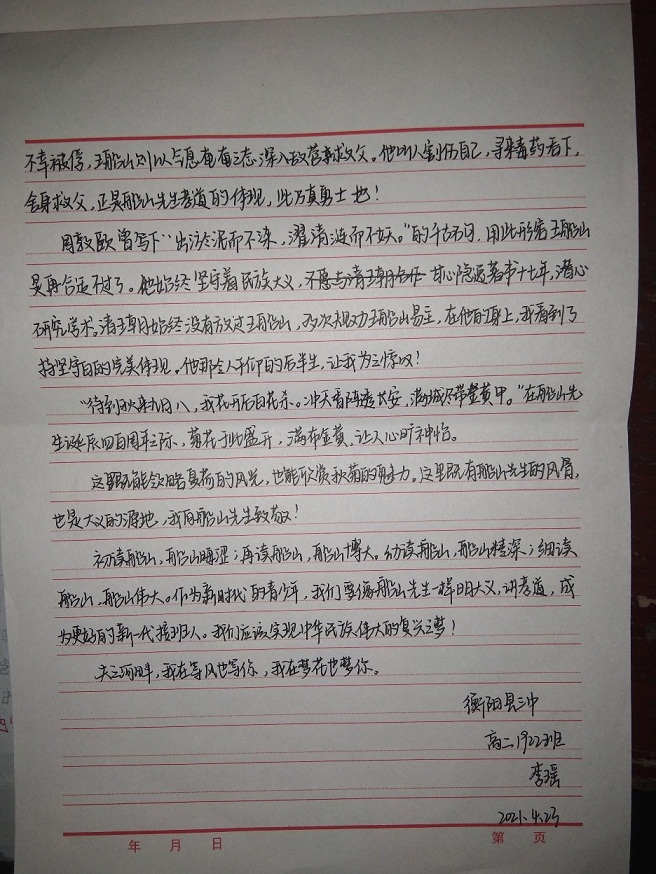 不幸被俘，王船山则以与恩奄奄之态深入敌营求父。他叫人割伤自己，寻来毒药吞下，
舍身求父，正是船山先生孝道的体现，此乃真勇士也！
周敦颐曾写下“出污於泥而不染，濯清涟而不妖。”的千古名句，用此形容王船山
是再合适不过了。他始终坚守着民族大义，不愿与清王朝合作 甘心隐退著书十七年，潜心
研究学术。清王朝始终没有放过王船山，多次规劝王船山易主，在他的身上，我看到了
持坚守白的完美体现。他那令人仰的后半生，让我为之惊叹！
“待到秋来九月八，我花开后百花杀。冲天香阵透长安，满城尽带黄金甲。”在船山先
生诞辰四百周年之际，菊花于此盛开，满布金黄，让人心旷神怡。
这里既能领略夏荷的风光，也能欣赏秋菊的魅力。这里既有船山先生的风骨，
也是大义的源地，我向船山先生致敬！
初读船山，船山晦涩；再读船山，船山博大。幼读船山，船山精深；细读
船山，船山伟大。作为新时代的青少年，我们要像船山先生一样明大义，讲孝道，成
为更好的新一代接班人。我们应该实现中华民族伟大的复兴之梦！
我在等风也等你，我在梦花也梦你。
衡阳县三中
高二1922班
李瑶
2021.4.23
年 月 日 第 页